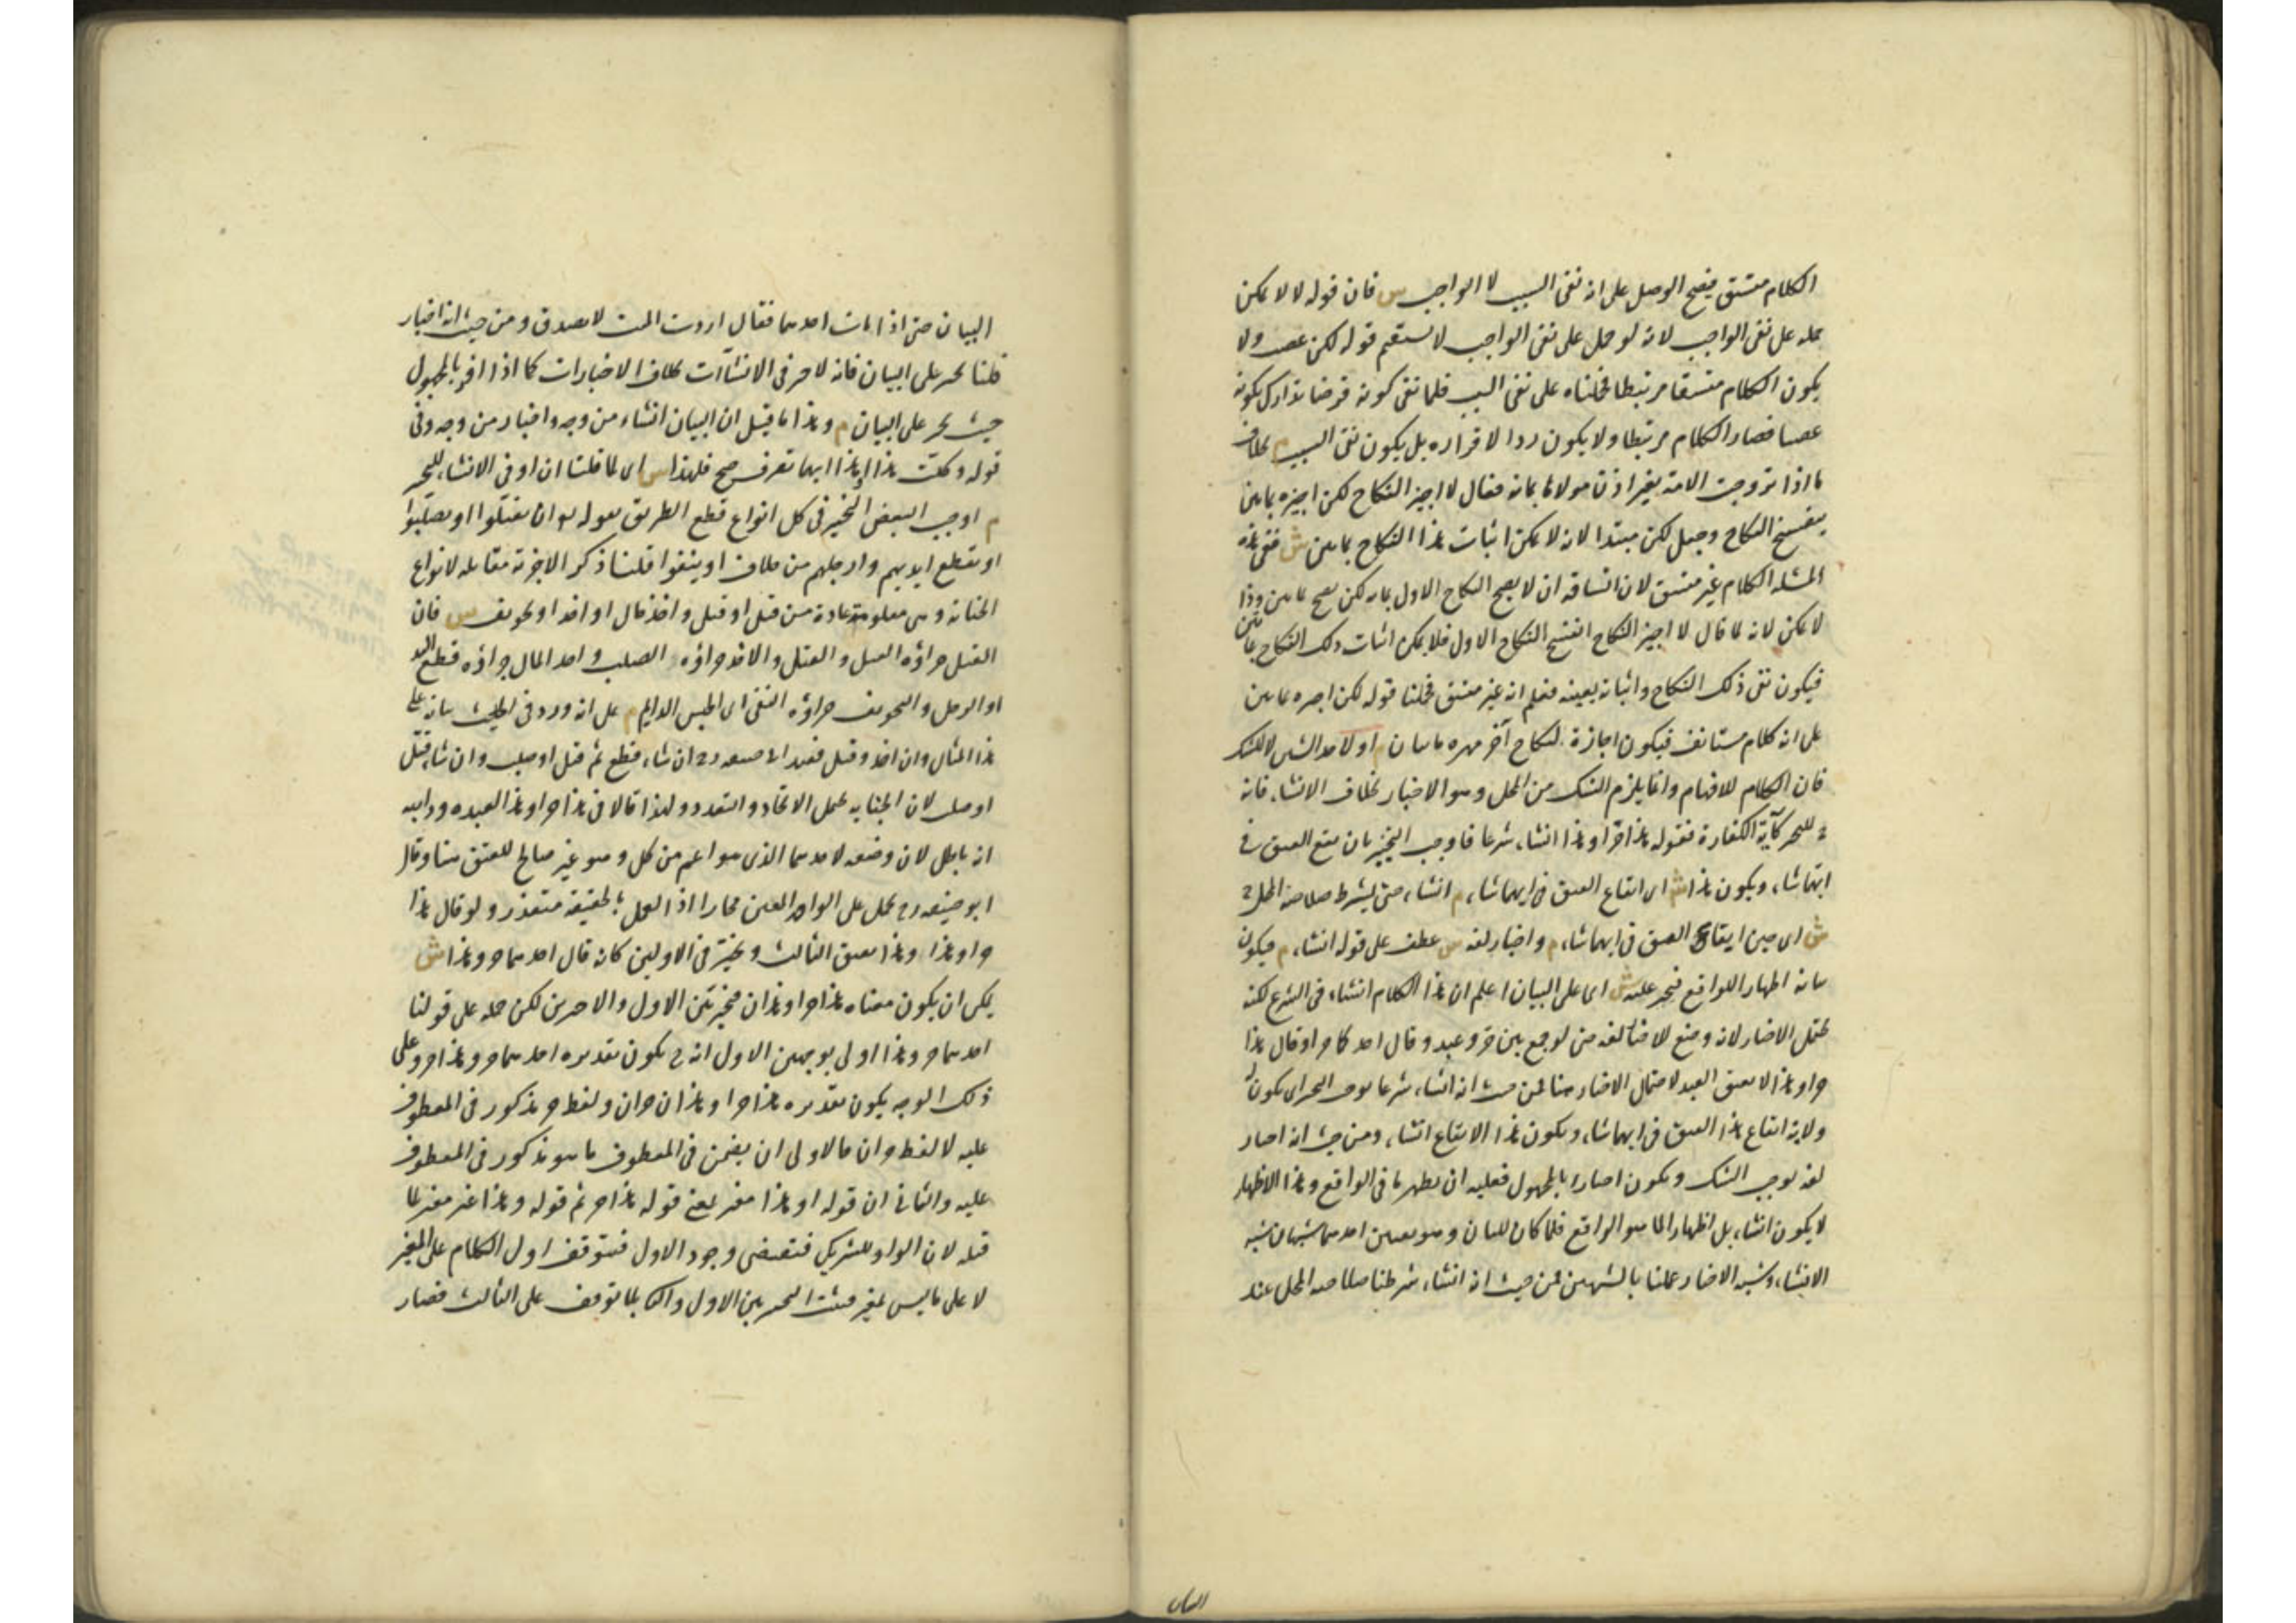 الكلام متسق فيصح الوصل على انه نفى السبب لا الواجب س فان قوله لا لا يمكن
حمله على نفى الواجب لانه لو حمل على نفى الواجب لا يستقيم قوله لكن غصب ولا
يكون الكلام متسقا مرتبطا فحملناه على نفى السبب فلما نفى كونه قرضا تدارك بكونه
غصبا فصار الكلام مرتبطا ولا يكون ردا لاقراره بل يكون نفى السبب م بخلاف
ما اذا تزوجت الامة بغير اذن مولاها بمائة فقال لا اجيز النكاح لكن اجيزه بمايتين
ينفسخ النكاح وجعل لكن مبتدا لانه لا يمكن اثبات هذا النكاح بمايتين ش ففى هذه
المسئلة الكلام غير متسق لان اتساقه ان لا يصح النكاح الاول بمائة لكن يصح بمايتين وذا
لا يمكن لانه لما قال لا اجيز النكاح انفسخ النكاح الاول فلا يمكن اثبات ذلك النكاح بمايتين
فيكون نفى ذلك النكاح واثباته بعينه فعلم انه غير متسق فحملنا قوله لكن اجيزه بمايتين
على انه كلام مستانف فيكون اجازة لنكاح آخر مهره مايتان م او لاحد الشيئين لا للشك
فان الكلام للافهام وانما يلزم الشك من المحل وهو الاخبار بخلاف الانشاء فانه
ح للتخيير كآية الكفارة فقوله هذا حر او هذا انشاء شرعا فاوجب التخيير بان يوقع العتق فى
ايهما شاء ويكون هذا ش اى ايقاع العتق فى ايهما شاء م انشاء حتى يشترط صلاحية المحل ح
ش اى حين ايقاع العتق فى ايهما شاء م واخبار لغة س عطف على قوله انشاء م فيكون
بيانه اظهار الواقع فيجبر عليه ش اى على البيان اعلم ان هذا الكلام انشاء فى الشرع لكنه
يحتمل الاخبار لانه وضع للاخبار لغة حتى لو جمع بين حر وعبد وقال احدكما حر او قال هذا
حر او هذا لا يعتق العبد لاحتمال الاخبار هنا فمن حيث انه انشاء شرعا يوجب التخيير اى يكون له
ولاية ايقاع هذا العتق فى ايهما شاء ويكون هذا الايقاع انشاء ومن حيث انه اخبار
لغة يوجب الشك ويكون اخبارا بالمجهول فعليه ان يظهر ما فى الواقع وهذا الاظهار
لا يكون انشاء بل اظهار الما هو الواقع فلما كان للبيان وهو تعيين احدهما شبهان شبه
الانشاء وشبه الاخبار عملنا بالشبهين فمن حيث انه انشاء شرطنا صلاحية المحل عند
البيان
البيان حتى اذا مات احدهما فقال اردت الميت لا يصدق ومن حيث انه اخبار
قلنا يجبر على البيان فانه لا جبر فى الانشاآت بخلاف الاخبارات كما اذا اقر بالمجهول
حيث يجبر على البيان م وهذا ما قيل ان البيان انشاء من وجه واخبار من وجه وفى
قوله وكلت هذا او هذا ايهما تصرف صح فلهذا س اى لما قلنا ان او فى الانشاء للتخيير
م اوجب البعض التخيير فى كل انواع قطع الطريق بقوله تع ان يقتلوا او يصلبوا
او تقطع ايديهم وارجلهم من خلاف او ينفوا قلنا ذكر الاجزئة مقابلة لانواع
الجناية وهى معلومة عادة من قتل او قتل واخذ مال او اخذ او تخويف س فان
القتل جزاؤه القتل والقتل والاخذ جزاؤه الصلب واخذ المال جزاؤه قطع اليد
او الرجل والتخويف جزاؤه النفى اى الحبس الدايم م على انه ورد فى الحديث بيانه على
هذا المثال وان اخذ وقتل فعند ابى حنيفة رح ان شاء قطع ثم قتل او صلب وان شاء قتل
او صلب لان الجناية يحتمل الاتحاد والتعدد ولهذا قالا فى هذا حر او هذا لعبده ودابته
انه باطل لان وضعه لاحدهما الذى هو اعم من كل وهو غير صالح للعتق هنا وقال
ابو حنيفة رح يحمل على الواحد المعين مجازا اذ العمل بالحقيقة متعذر ولو قال هذا
حر او هذا وهذا يعتق الثالث ويخير فى الاولين كانه قال احدهما حر وهذا ش
يمكن ان يكون معناه هذا حر او هذان فيخير بين الاول والاخرين لكن حمله على قولنا
احدهما حر وهذا اولى بوجهين الاول انه ح يكون تقديره احدهما حر وهذا حر وعلى
ذلك الوجه يكون تقديره هذا حر او هذان حران ولفظ حر مذكور فى المعطوف
عليه لا لفظ حران فالاولى ان يضمن فى المعطوف ما هو مذكور فى المعطوف
عليه والثانى ان قوله او هذا مغير لمعنى قوله هذا حر ثم قوله وهذا غير مغير لما
قبله لان الواو للتشريك فتقتضى وجود الاول فيتوقف اول الكلام على المغير
لا على ما ليس بمغير فيثبت التخيير بين الاول والثانى بلا توقف على الثالث فصار